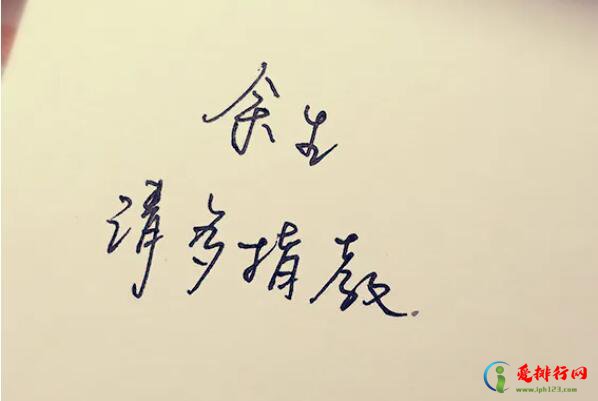 余生
请多指教.
爱排行网
www.iph123.com